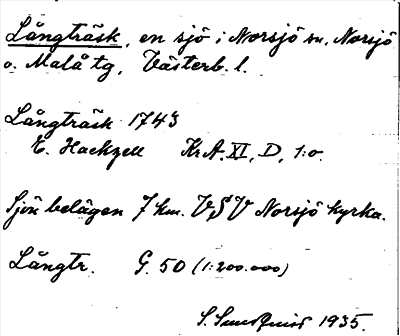 Långträsk, en sjö i Norsjö sn, Norsjö
o. Malå tg, Västerb. l.
Långträsk 1743
E. Hackzell KrA, XI, D, 1:o.
Sjön belägen 7 km. VSV Norsjö kyrka.
Långtr. G. 50 (1:200.000)
S. Sundquist 1935.